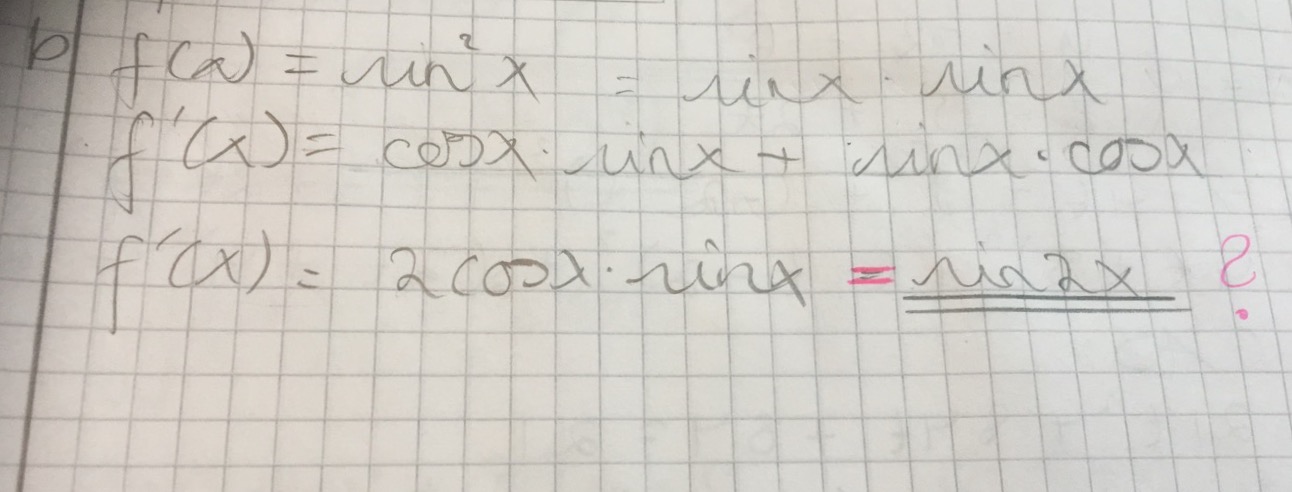 b) f(x) = sin²x = sinx · sinx
f'(x) = cosx · sinx + sinx · cosx
f'(x) = 2cosx · sinx = sin2x ?